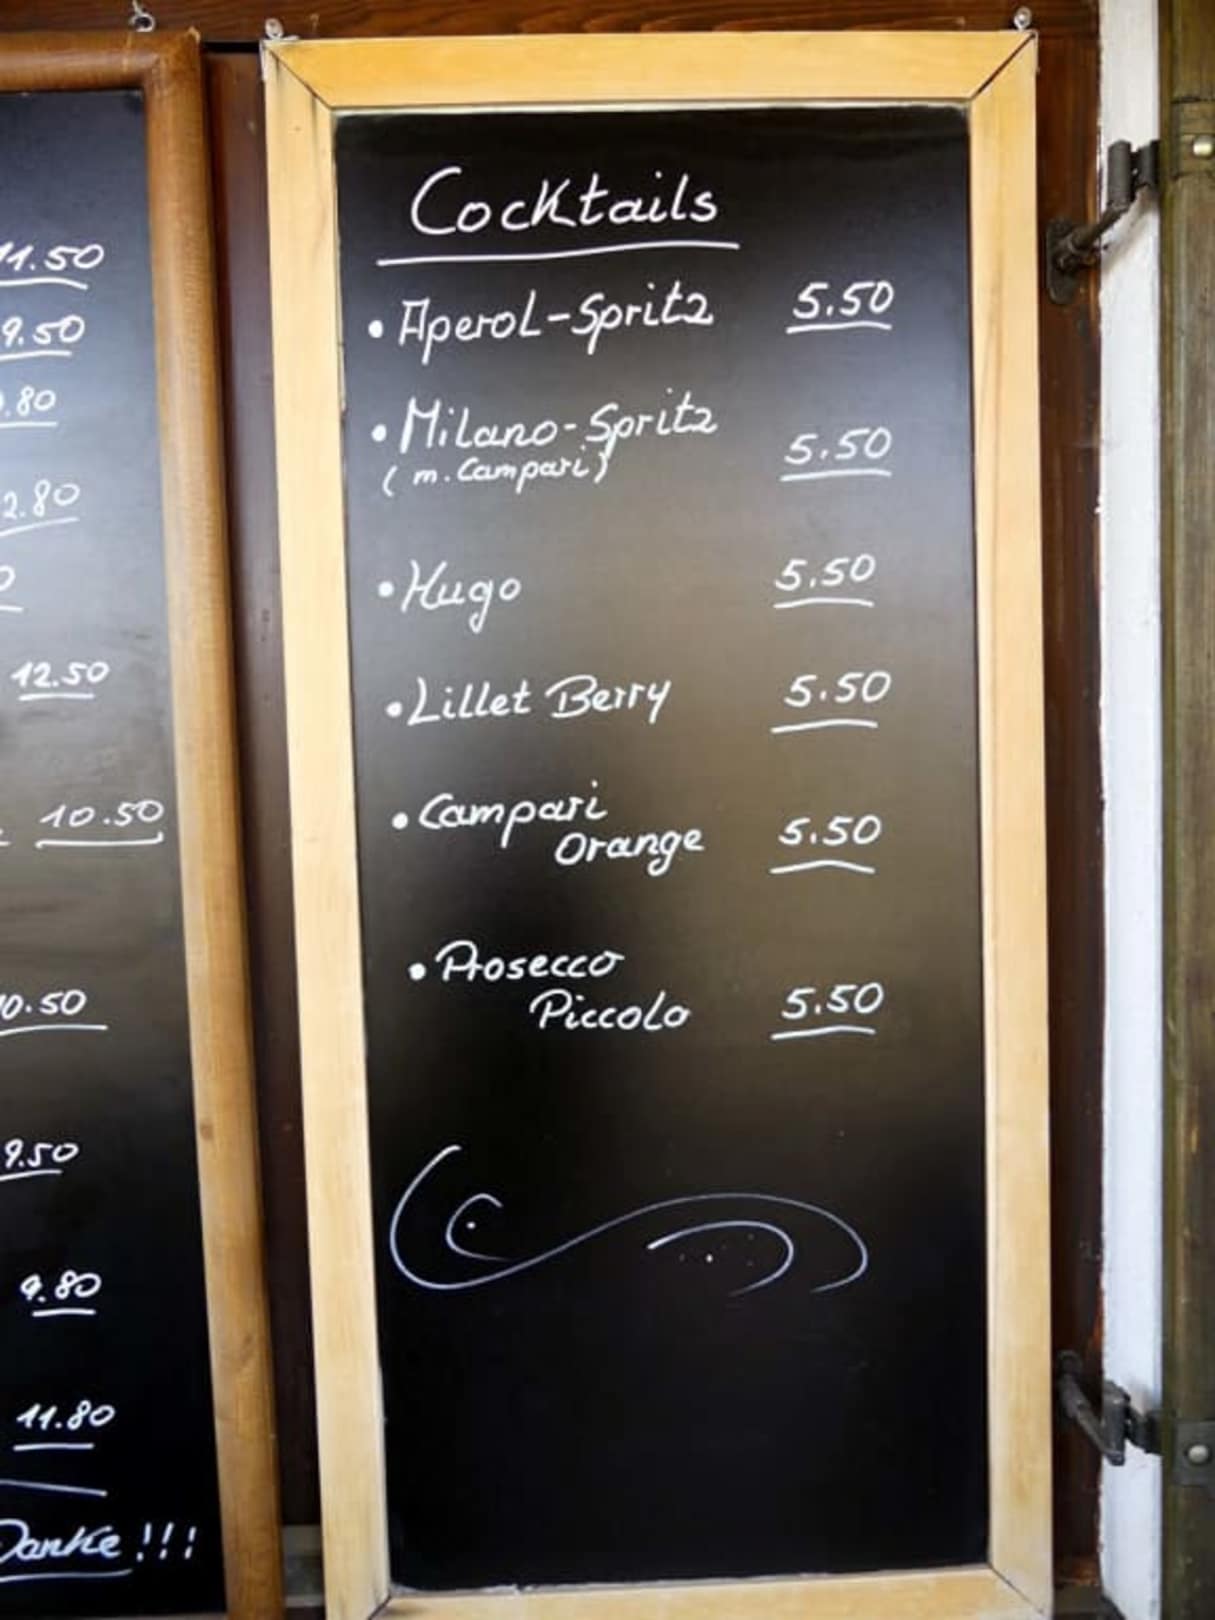 11.50
9.50
.80
2.80
0
12.50
10.50
10.50
9.50
9.80
11.80
Danke!!!
Cocktails
• Aperol-Spritz 5.50
• Milano-Spritz
(m. Campari) 5.50
• Hugo 5.50
• Lillet Berry 5.50
• Campari
Orange 5.50
• Prosecco
Piccolo 5.50